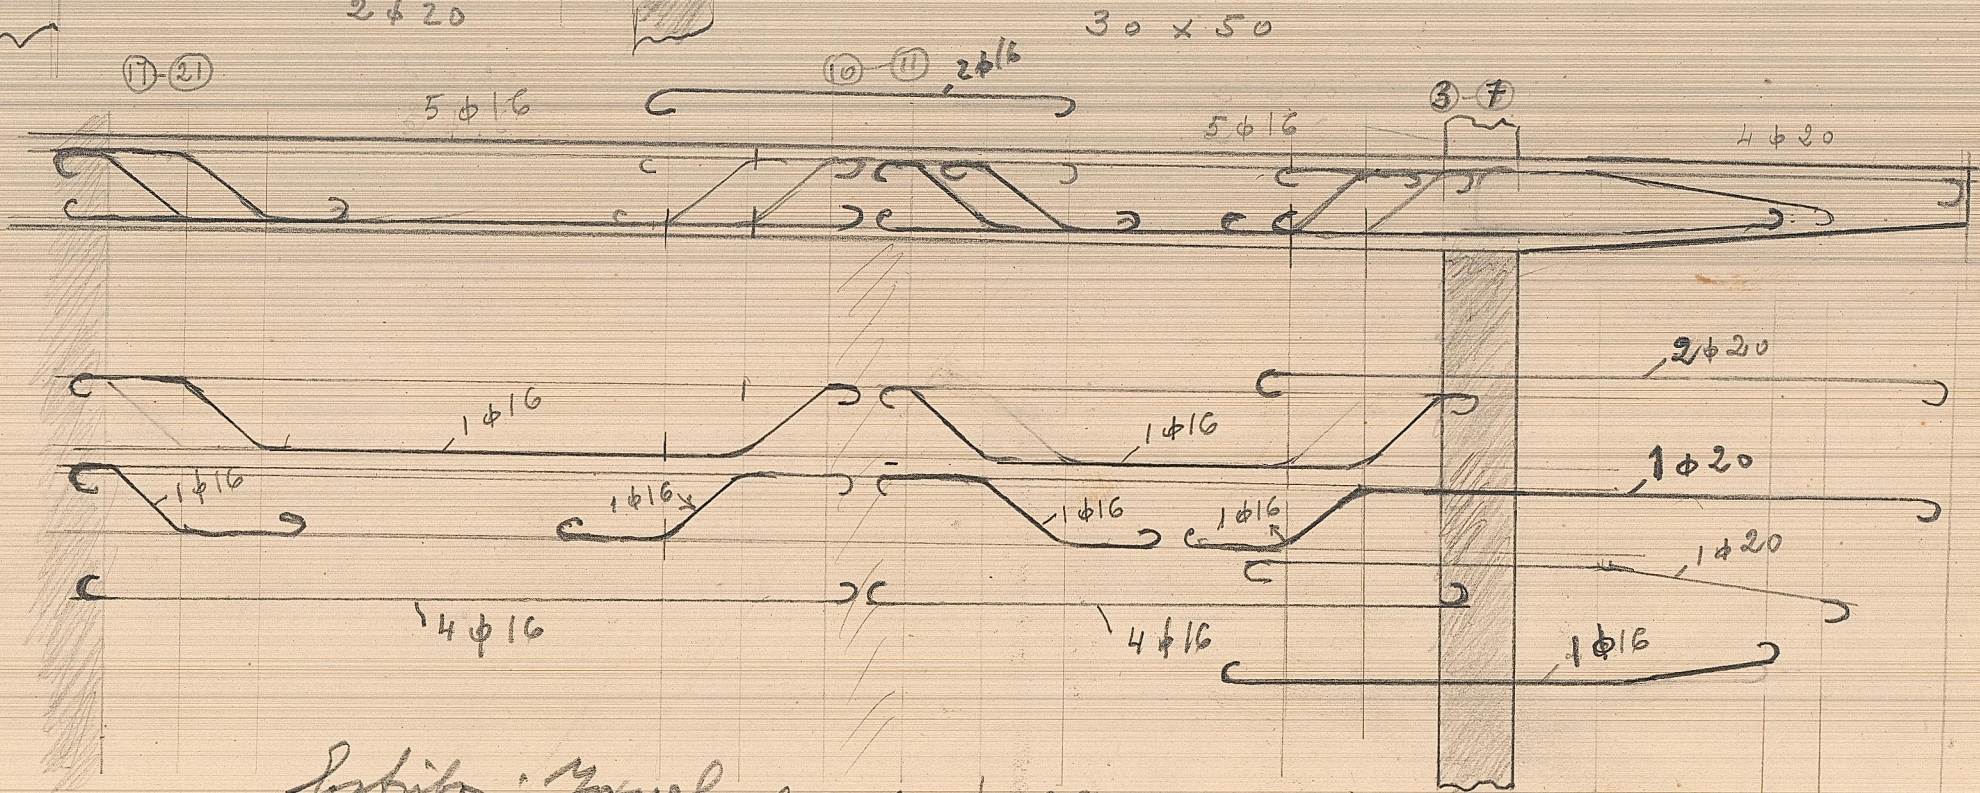 2ϕ20
30 x 50
17-21
10-11
2ϕ16
3-7
5ϕ16
5ϕ16
4ϕ20
2ϕ20
1ϕ16
1ϕ16
1ϕ20
1ϕ16
1ϕ16
1ϕ16
1ϕ16
1ϕ20
4ϕ16
4ϕ16
1ϕ16